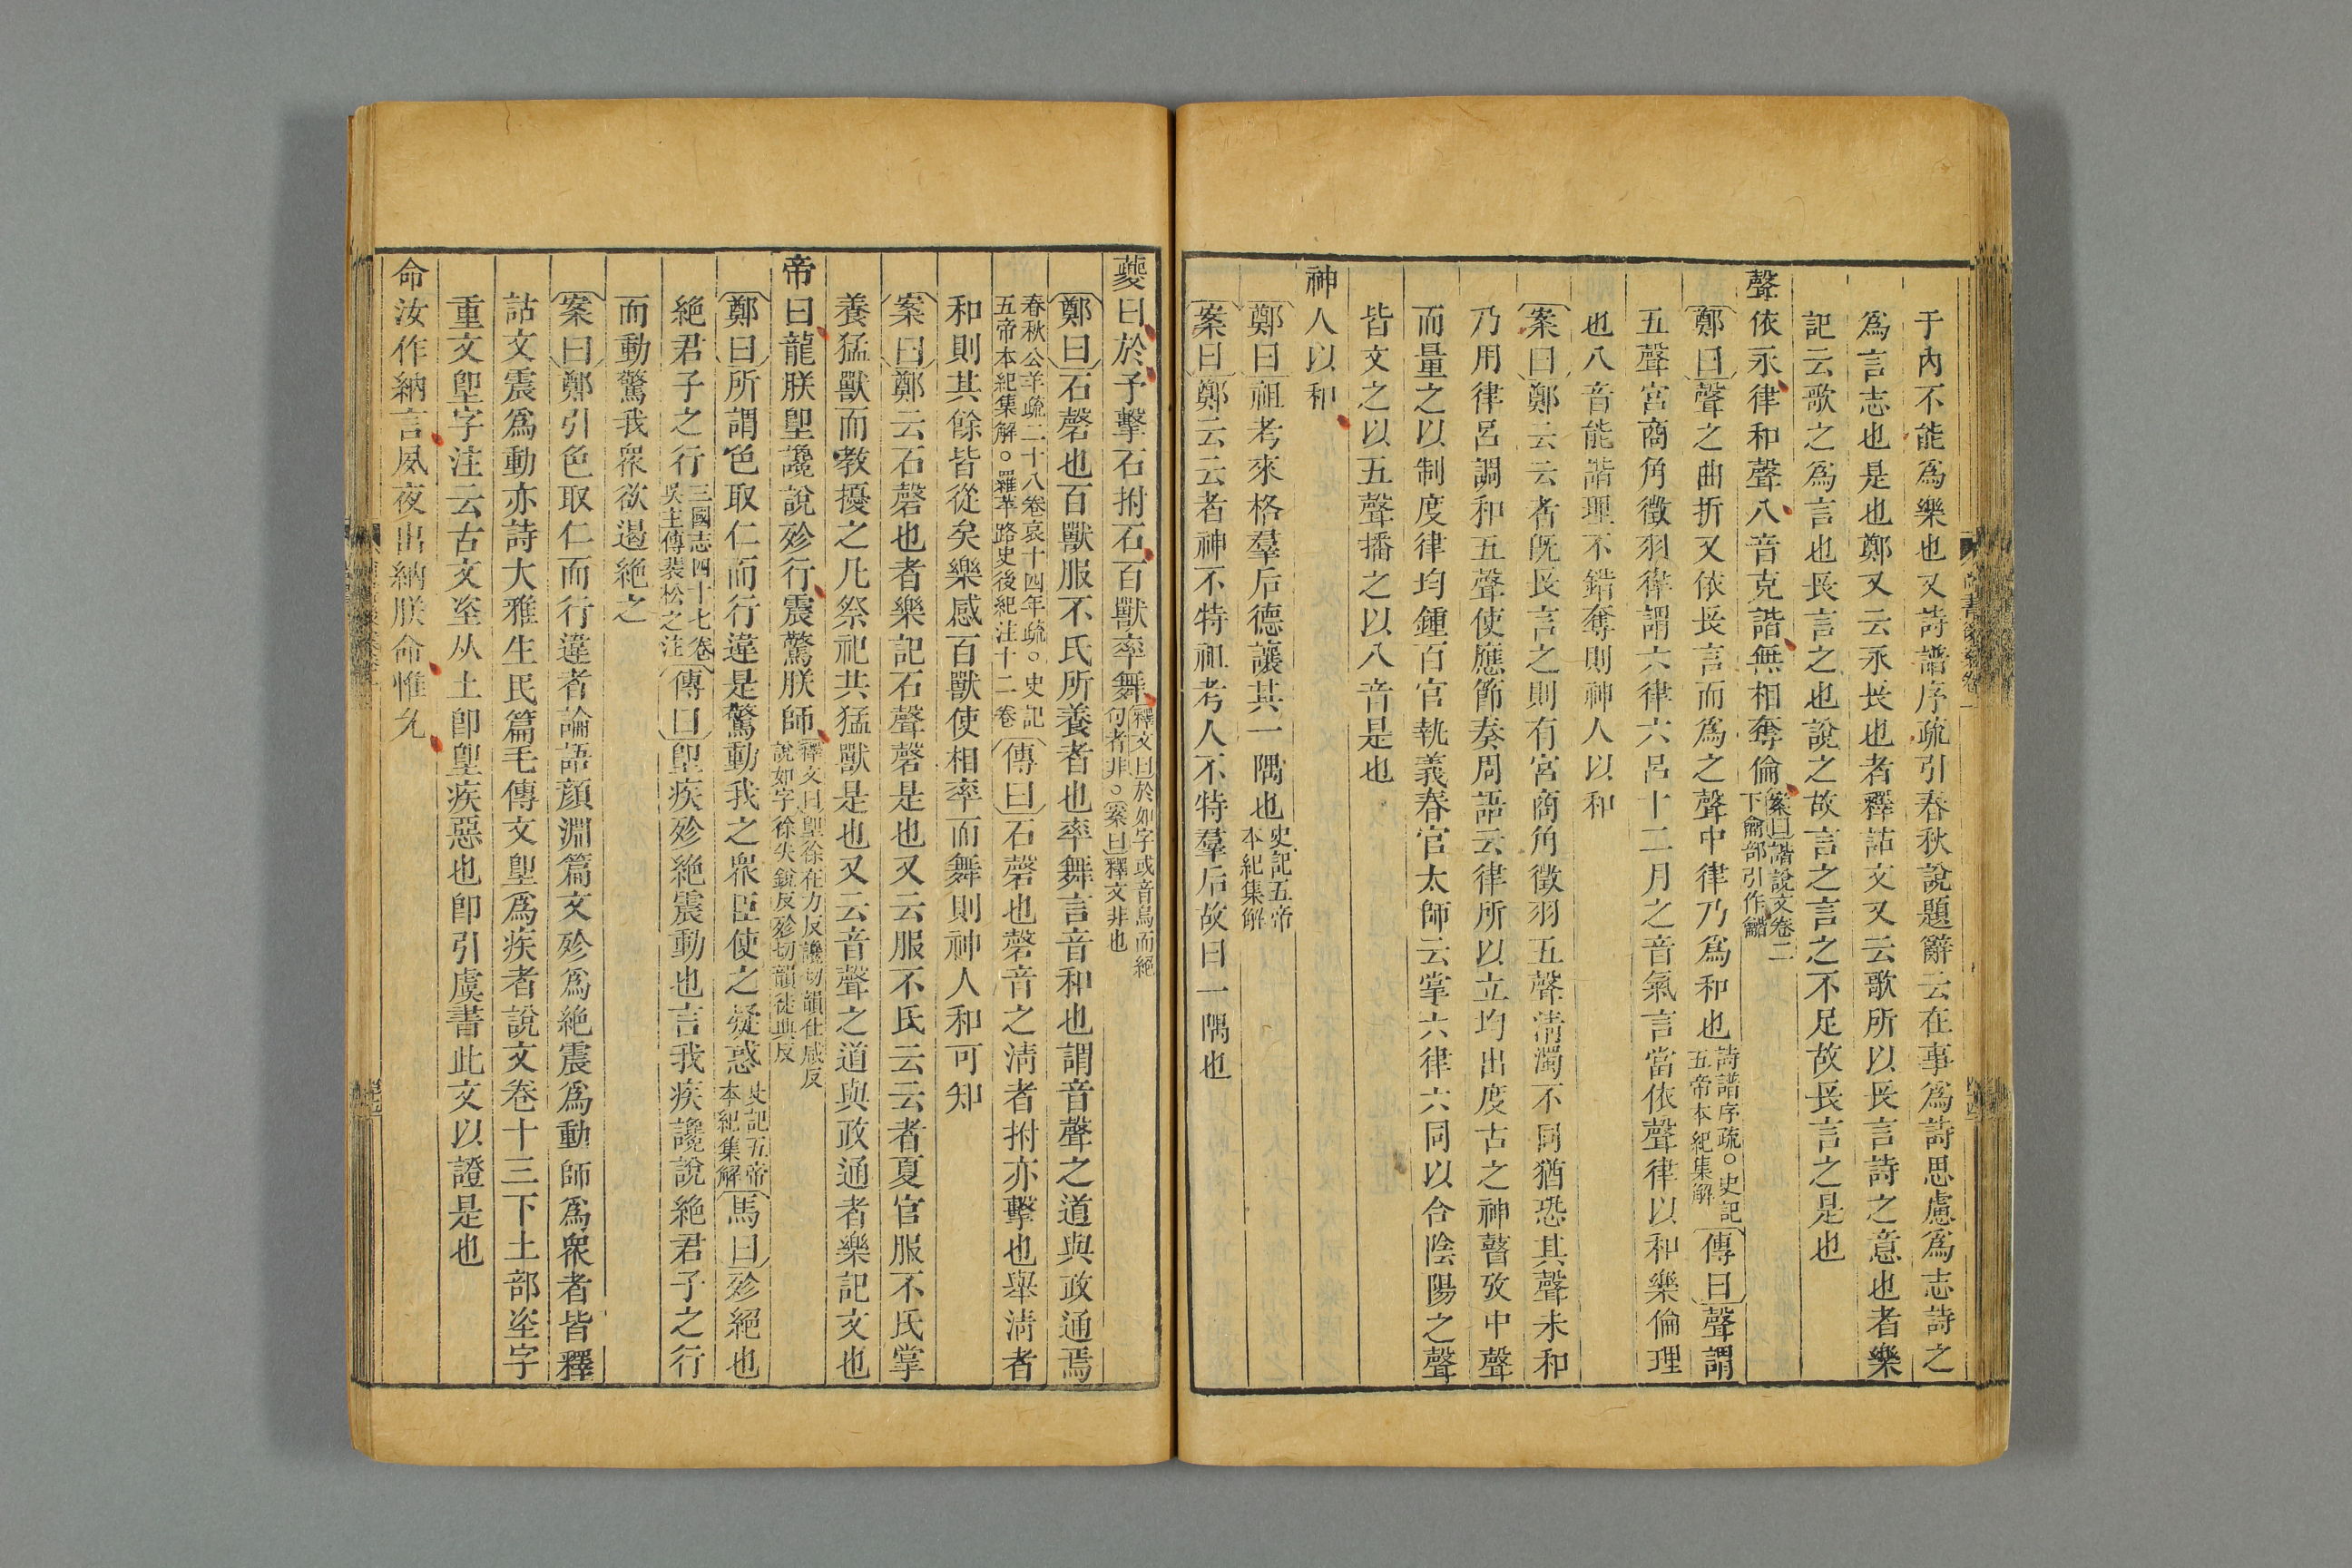 于內不能爲樂也又詩譜序疏引春秋說題辭云在事爲詩思慮爲志詩之
爲言志也是也鄭又云永長也者釋詁文又云歌所以長言詩之意也者樂
記云歌之爲言也長言之也說之故言之言之不足故長言之是也
聲依永律和聲八音克諧無相奪倫案曰諧說文卷二下龠部引作龤
鄭曰聲之曲折又依長言而爲之聲中律乃爲和也詩譜序疏○史記五帝本紀集解傳曰聲謂
五聲宮商角徵羽律謂六律六呂十二月之音氣言當依聲律以和樂倫理
也八音能諧理不錯奪則神人以和
案曰鄭云云者旣長言之則有宮商角徵羽五聲淸濁不同猶恐其聲未和
乃用律呂調和五聲使應節奏周語云律所以立均出度古之神瞽攷中聲
而量之以制度律均鍾百官執義春官太師云掌六律六同以合陰陽之聲
皆文之以五聲播之以八音是也
神人以和
鄭曰祖考來格羣后德讓其一隅也史記五帝本紀集解
案曰鄭云云者神不特祖考人不特羣后故曰一隅也
夔曰於予擊石拊石百獸率舞釋文曰於如字或音烏而絕句者非○案曰釋文非也
鄭曰石磬也百獸服不氏所養者也率舞言音和也謂音聲之道與政通焉
春秋公羊疏二十八卷哀十四年疏○史記五帝本紀集解○羅苹路史後紀注十二卷傳曰石磬也磬音之淸者拊亦擊也舉淸者
和則其餘皆從矣樂感百獸使相率而舞則神人和可知
案曰鄭云石磬也者樂記石聲磬是也又云服不氏云云者夏官服不氏掌
養猛獸而教擾之凡祭祀共猛獸是也又云音聲之道與政通者樂記文也
帝曰龍朕堲讒說殄行震驚朕師釋文曰堲徐在力反讒切韻仕咸反說如字徐失銳反殄切韻徒典反
鄭曰所謂色取仁而行違是驚動我之衆臣使之疑惑史記五帝本紀集解馬曰殄絕也
絕君子之行三國志四十七卷吳主傳裴松之注傳曰堲疾殄絕震動也言我疾讒說絕君子之行
而動驚我衆欲遏絕之
案曰鄭引色取仁而行違者論語顏淵篇文殄爲絕震爲動師爲衆者皆釋
詁文震爲動亦詩大雅生民篇毛傳文堲爲疾者說文卷十三下土部垐字
重文堲字注云古文垐从土卽堲疾惡也卽引虞書此文以證是也
命汝作納言夙夜出納朕命惟允